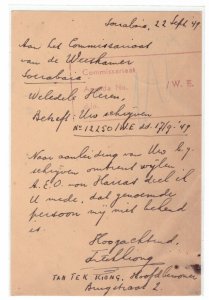 Soerabaia, 22 Sept. '49
Aan het Commissariaat
van de Weeskamer
Soerabaia
Commissariaat
Agenda No.
/W.E.
Weledele Heren,
Betreft: Uw schrijven
No 12250/WE dd. 17/9-'49
Naar aanleiding van Uw b.g.
schrijven omtrent wijlen
A.E.O. von Harras deel ik
U mede, dat genoemde
persoon mij niet bekend
is.
Hoogachtend,
TAN TEK KIONG, Hoofdbewoner
Brugstraat 2.